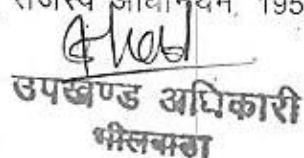 राजस्व अधिनियम, 195
उपखण्ड अधिकारी
भीलवाडा